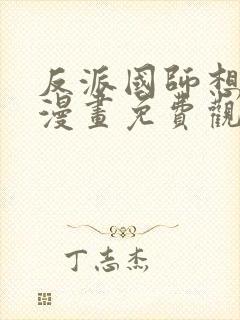 反派國師想
漫畫免費觀
丁志杰